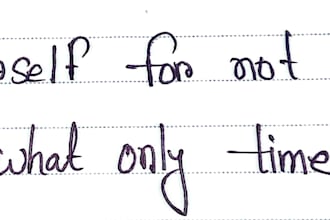 oself for not
what only time